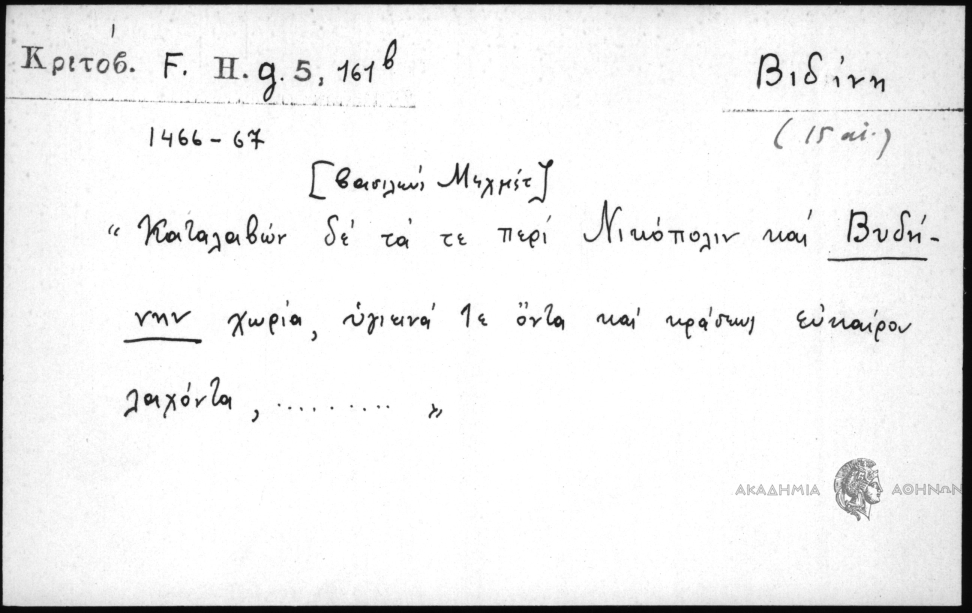 Κριτόβ. F. H. g. 5, 161β
Βιδίνη
1466-67
(15 αἰ.)
[βασιλεὺς Μεχμέτ]
“ Καταλαβὼν δὲ τά τε περὶ Νικόπολιν καὶ Βυδή-
νην χωρία, ὑγιεινά τε ὄντα καὶ κράσεως εὐκαίρου
λαχόντα, .......... ”
ΑΚΑΔΗΜΙΑ ΑΘΗΝΩΝ